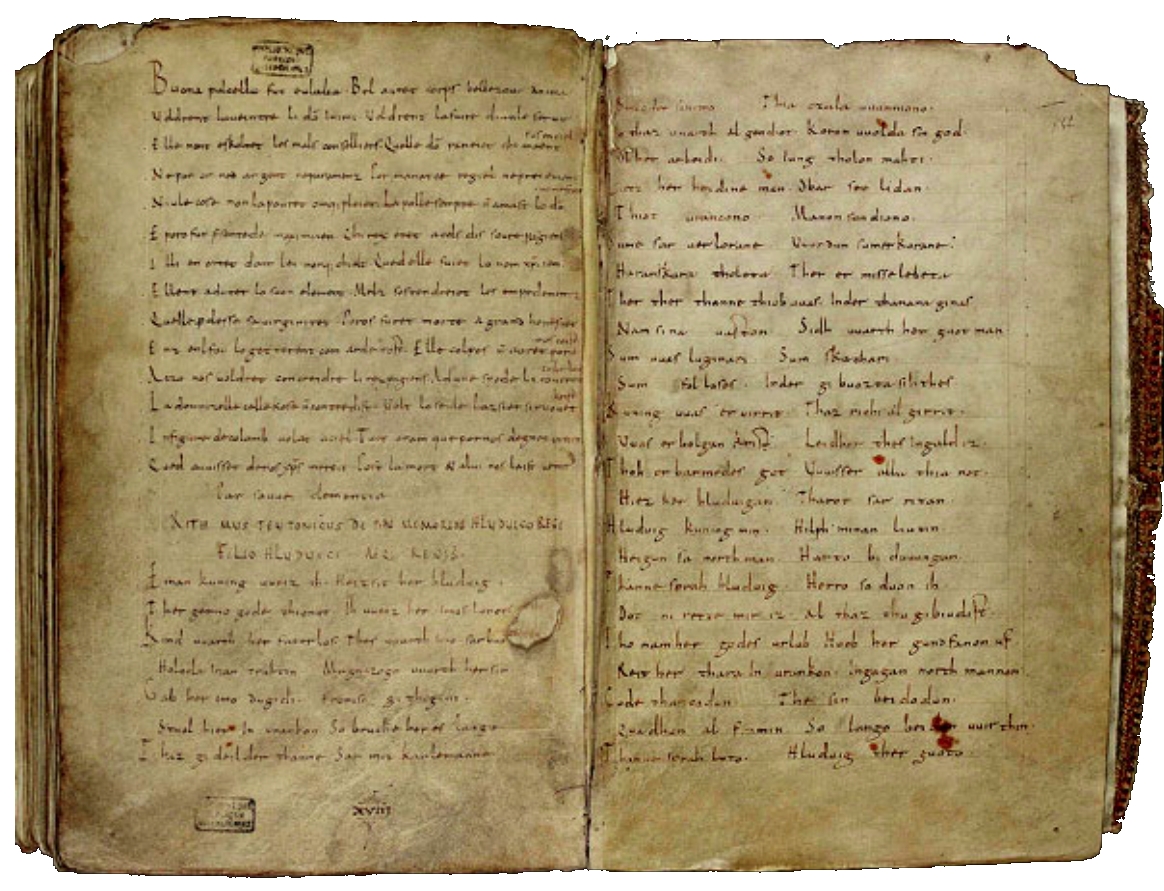 Buona pulcella fut eulalia. Bel auret corps bellezour anima
Voldrent la ueintre li dō inimi. Voldrent la faire diaule seruir
Elle nont eskoltet les mals conselliers. Quelle dō raneiet chi maent
sus en ciel
Ne por or ned argent ne paramenz. Por manatce regiel ne preiement
Niule cose non la pouret omq; pleier. La polle sempre ñ amast lo dō
E poro fut presentede maximiien. Chi rex eret a cels dis soure pagiens
Il li enortet dont lei nonq; chielt. Qued elle fuiet lo nom xp̄iien.
Ellent adunet lo suon element. Melz sostendreiet les empedementz
Quelle perdesse sa uirginitet. Poros furet morte a grand honestet
Enz enl fou lo getterent com arde tost. Elle colpes ñ auret poro
nos coist
Aezo nos uoldret concreidre li rex pagiens. Ad une spede li roueret
La domnizelle celle kose ñ contredist. Volt lo seule lazsier si ruouet
krist
In figure de colomb uolat a ciel. Tuit oram que por nos degnet preier
Qued auuisset de nos xp̄s mercit. Post la mort & a lui nos laist uenir
Par souue clementia
RITHMUS TEUTONICUS DE PIAE MEMORIAE HLUDUICO REGE
FILIO HLUDUICI AEQ; REGIS.
Einan kuning uueiz ih. Heizsit her hluduig.
Ther gerno gode thionot. Ih uueiz her imos lonot
Kind uuarth her faterlos. Thes uuarth imo sar buoz
Holoda inan truhtin Magaczogo uuarth her sin
Gab her imo dugidi. Fronisc githigini.
Stual hier in urankon So bruche her es lango
Thaz gideilder thanne Sar mit karlemanne
Thia czala uuunniono.
So thaz uuarth al gendiot. Koron uuolda sin god.
Ob her arbeidi. So iung tholon mahti.
Lietz her heidine man. Obar seo lidan.
Thiot urancono Manon sundiono.
Sume sar uerlorane Uuurdun sumerkorane.
Haranskara tholota Ther er misselebeta
Ther ther thanne thiob uuas. Inder thanana ginas
Nam sina uaston Sidh uuarth her guot man.
Sum uuas luginari Sum skachari.
Sum fol loses. Inder gibuozta sih thes
Kuning uuas eruirrit Thaz richi al girrit.
Uuas erbolgan krist Leidhor thes ingald iz.
Thoh erbarmedes got Uuisser alla thia not.
Hiez her hluduigan Tharot sar ritan.
Hluduig kuning min. Hilph minan liutin.
Heigun sa northman Harto biduuungan.
Thanne sprah hluduig. Herro so duon ih
Dot ni rette mir iz Al thaz thu gibiudist
Tho nam her godes urlub Hueb her gundfanon uf.
Reit her thara in urankon. Ingagan northmannon.
Gode thancodun The sin beidodun.
Quadhun al fromin So lango beidon uuir thin.
Thanne sprah luto. Hluduig ther guoto
xviiij